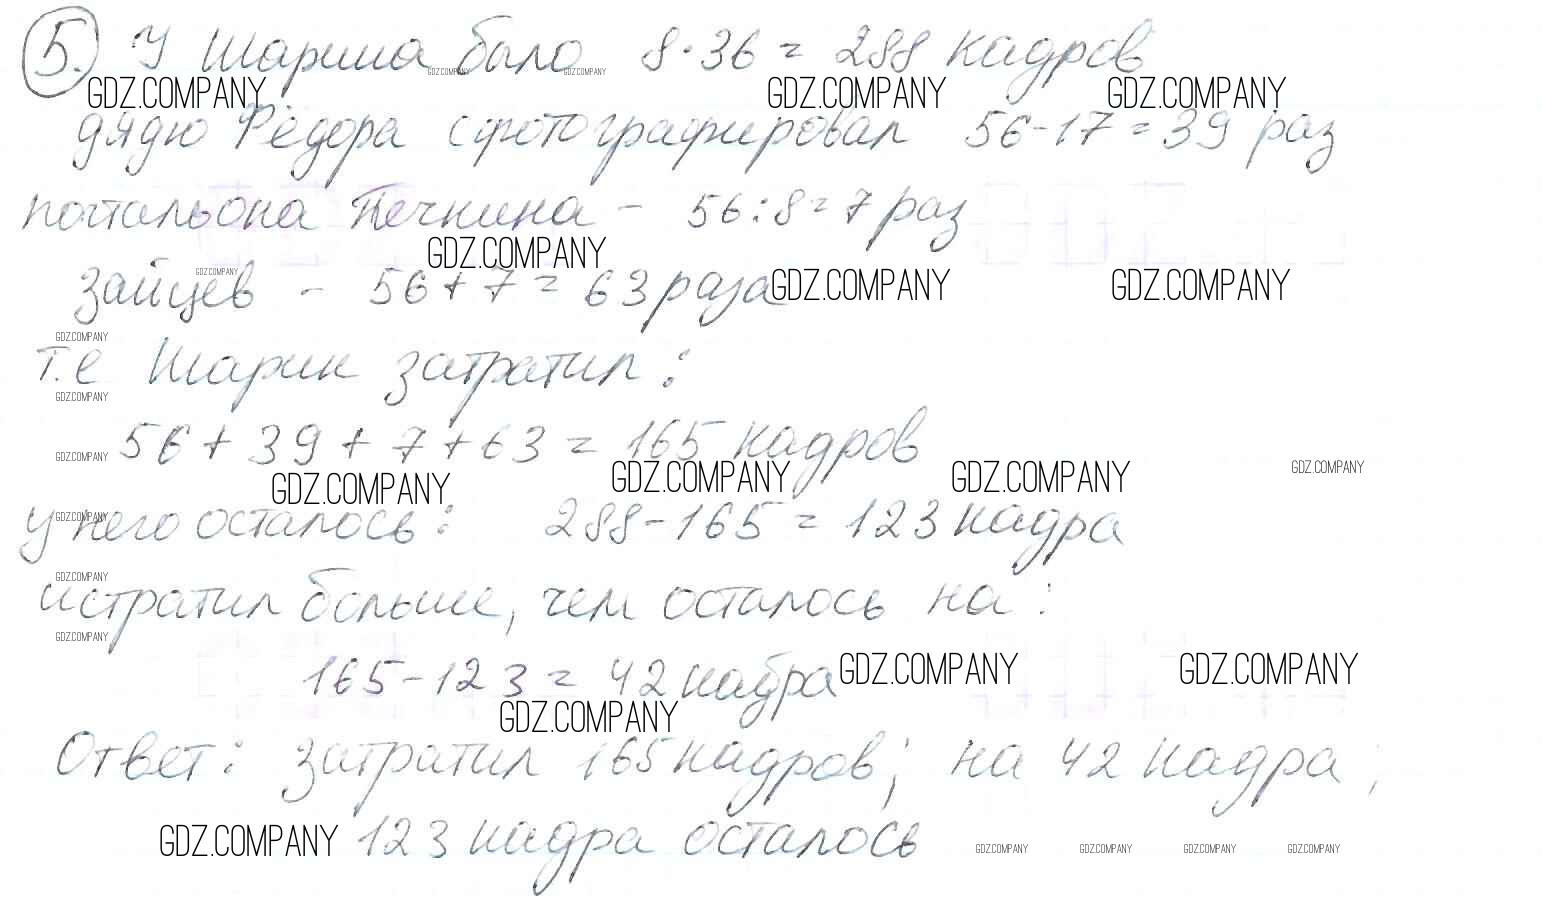 5. У Шарика было 8·36 = 288 кадров
GDZ.COMPANY GDZ.COMPANY GDZ.COMPANY GDZ.COMPANY GDZ.COMPANY
дядю Фёдора сфотографировал 56-17=39 раз
почтальона Печкина - 56:8=7 раз
GDZ.COMPANY
зайцев - 56+7=63 раза
GDZ.COMPANY GDZ.COMPANY GDZ.COMPANY
GDZ.COMPANY
т.е Шарик затратил:
GDZ.COMPANY
56+39+7+63=165 кадров
GDZ.COMPANY GDZ.COMPANY GDZ.COMPANY GDZ.COMPANY GDZ.COMPANY
у него осталось: 288-165=123 кадра
GDZ.COMPANY
GDZ.COMPANY
истратил больше, чем осталось на:
GDZ.COMPANY
165-123=42 кадра
GDZ.COMPANY GDZ.COMPANY
GDZ.COMPANY
Ответ: затратил 165 кадров; на 42 кадра;
GDZ.COMPANY 123 кадра осталось
GDZ.COMPANY GDZ.COMPANY GDZ.COMPANY GDZ.COMPANY